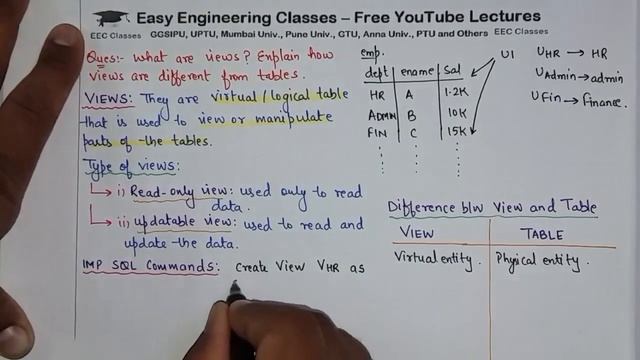 Easy Engineering Classes – Free YouTube Lectures
EEC Classes GGSIPU, UPTU, Mumbai Univ., Pune Univ., GTU, Anna Univ., PTU and Others EEC Classes
Ques:- what are views? Explain how
views are different from tables.
VIEWS: They are virtual/logical table
that is used to view or manipulate
parts of the tables.
Type of views:
i) Read-only view: used only to read
data.
ii) updatable view: used to read and
update the data.
IMP SQL Commands: Create View VHR as
emp.
dept ename Sal
HR A 1.2K
ADMN B 10K
FIN C 15K
U1
UHR → HR
UAdmin → admin
UFin → finance.
Difference b/w View and Table
VIEW TABLE
Virtual entity. Physical entity.